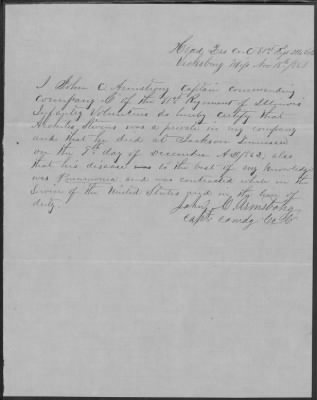 Head Qrs Co C 81st Regt Ills
Vicksburg Miss Nov 15th
I John C Armstrong Captain commanding
company C of the 81st Regiment of Illinois
Infantry Volunteers do hereby certify that
was a private in my company
and that he died at Jackson Tennessee
on the 9th day of December AD 1862, also
that his disease was to the best of my knowledge
was Pneumonia and was contracted while in the
Service of the United States and in the line of
duty.
John C. Armstrong
Capt comdg Co C